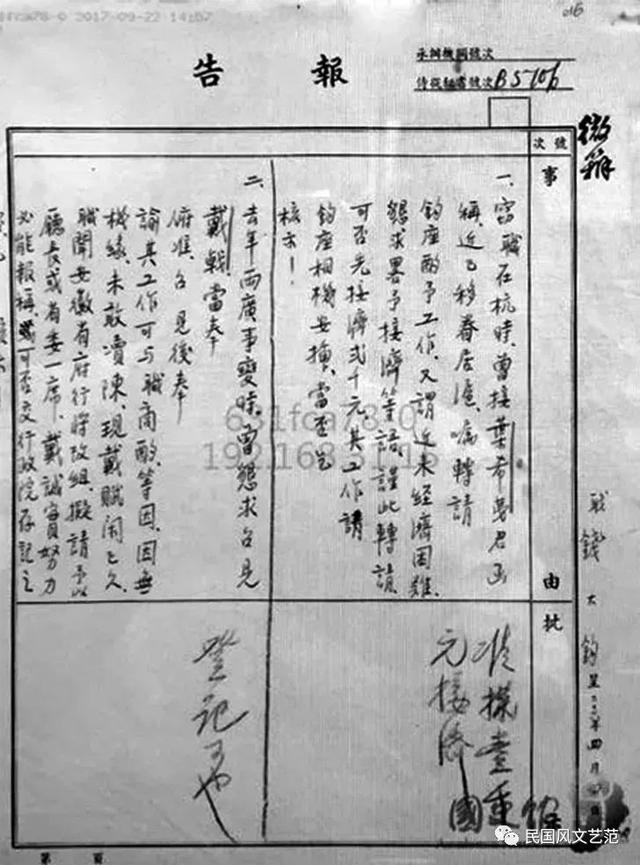 fca78-0 2017-09-22 14:57
016
報告
承辦機關號次
侍從秘書號次 B5706
號次
事由
一、竊職在杭時、曾接葉希夷君函
稱、近已移眷居滬、囑轉請
鈞座酌予工作、又謂近來經濟困難、
懇求畧予接濟等語、謹此轉請
可否先接濟弍千元其工作請
鈞座相機安插、當否乞
核示！
二、去年兩廣事變時、曾懇求召見
戴戟、當奉
俯准、召見後奉
諭其工作可与職商酌、等因、因無
機緣未敢凟陳、現戴賦閒已久、
職聞安徽省府行將改組、擬請予以
廳長或省委一席、戴誠實努力
必能報稱、或可否交行政院存記之
批
准撥壹
元接濟
登記可也
職錢大鈞呈 年四月 日
國史館
第 頁
631fca78-0
192.168.31.15
民国风文艺范